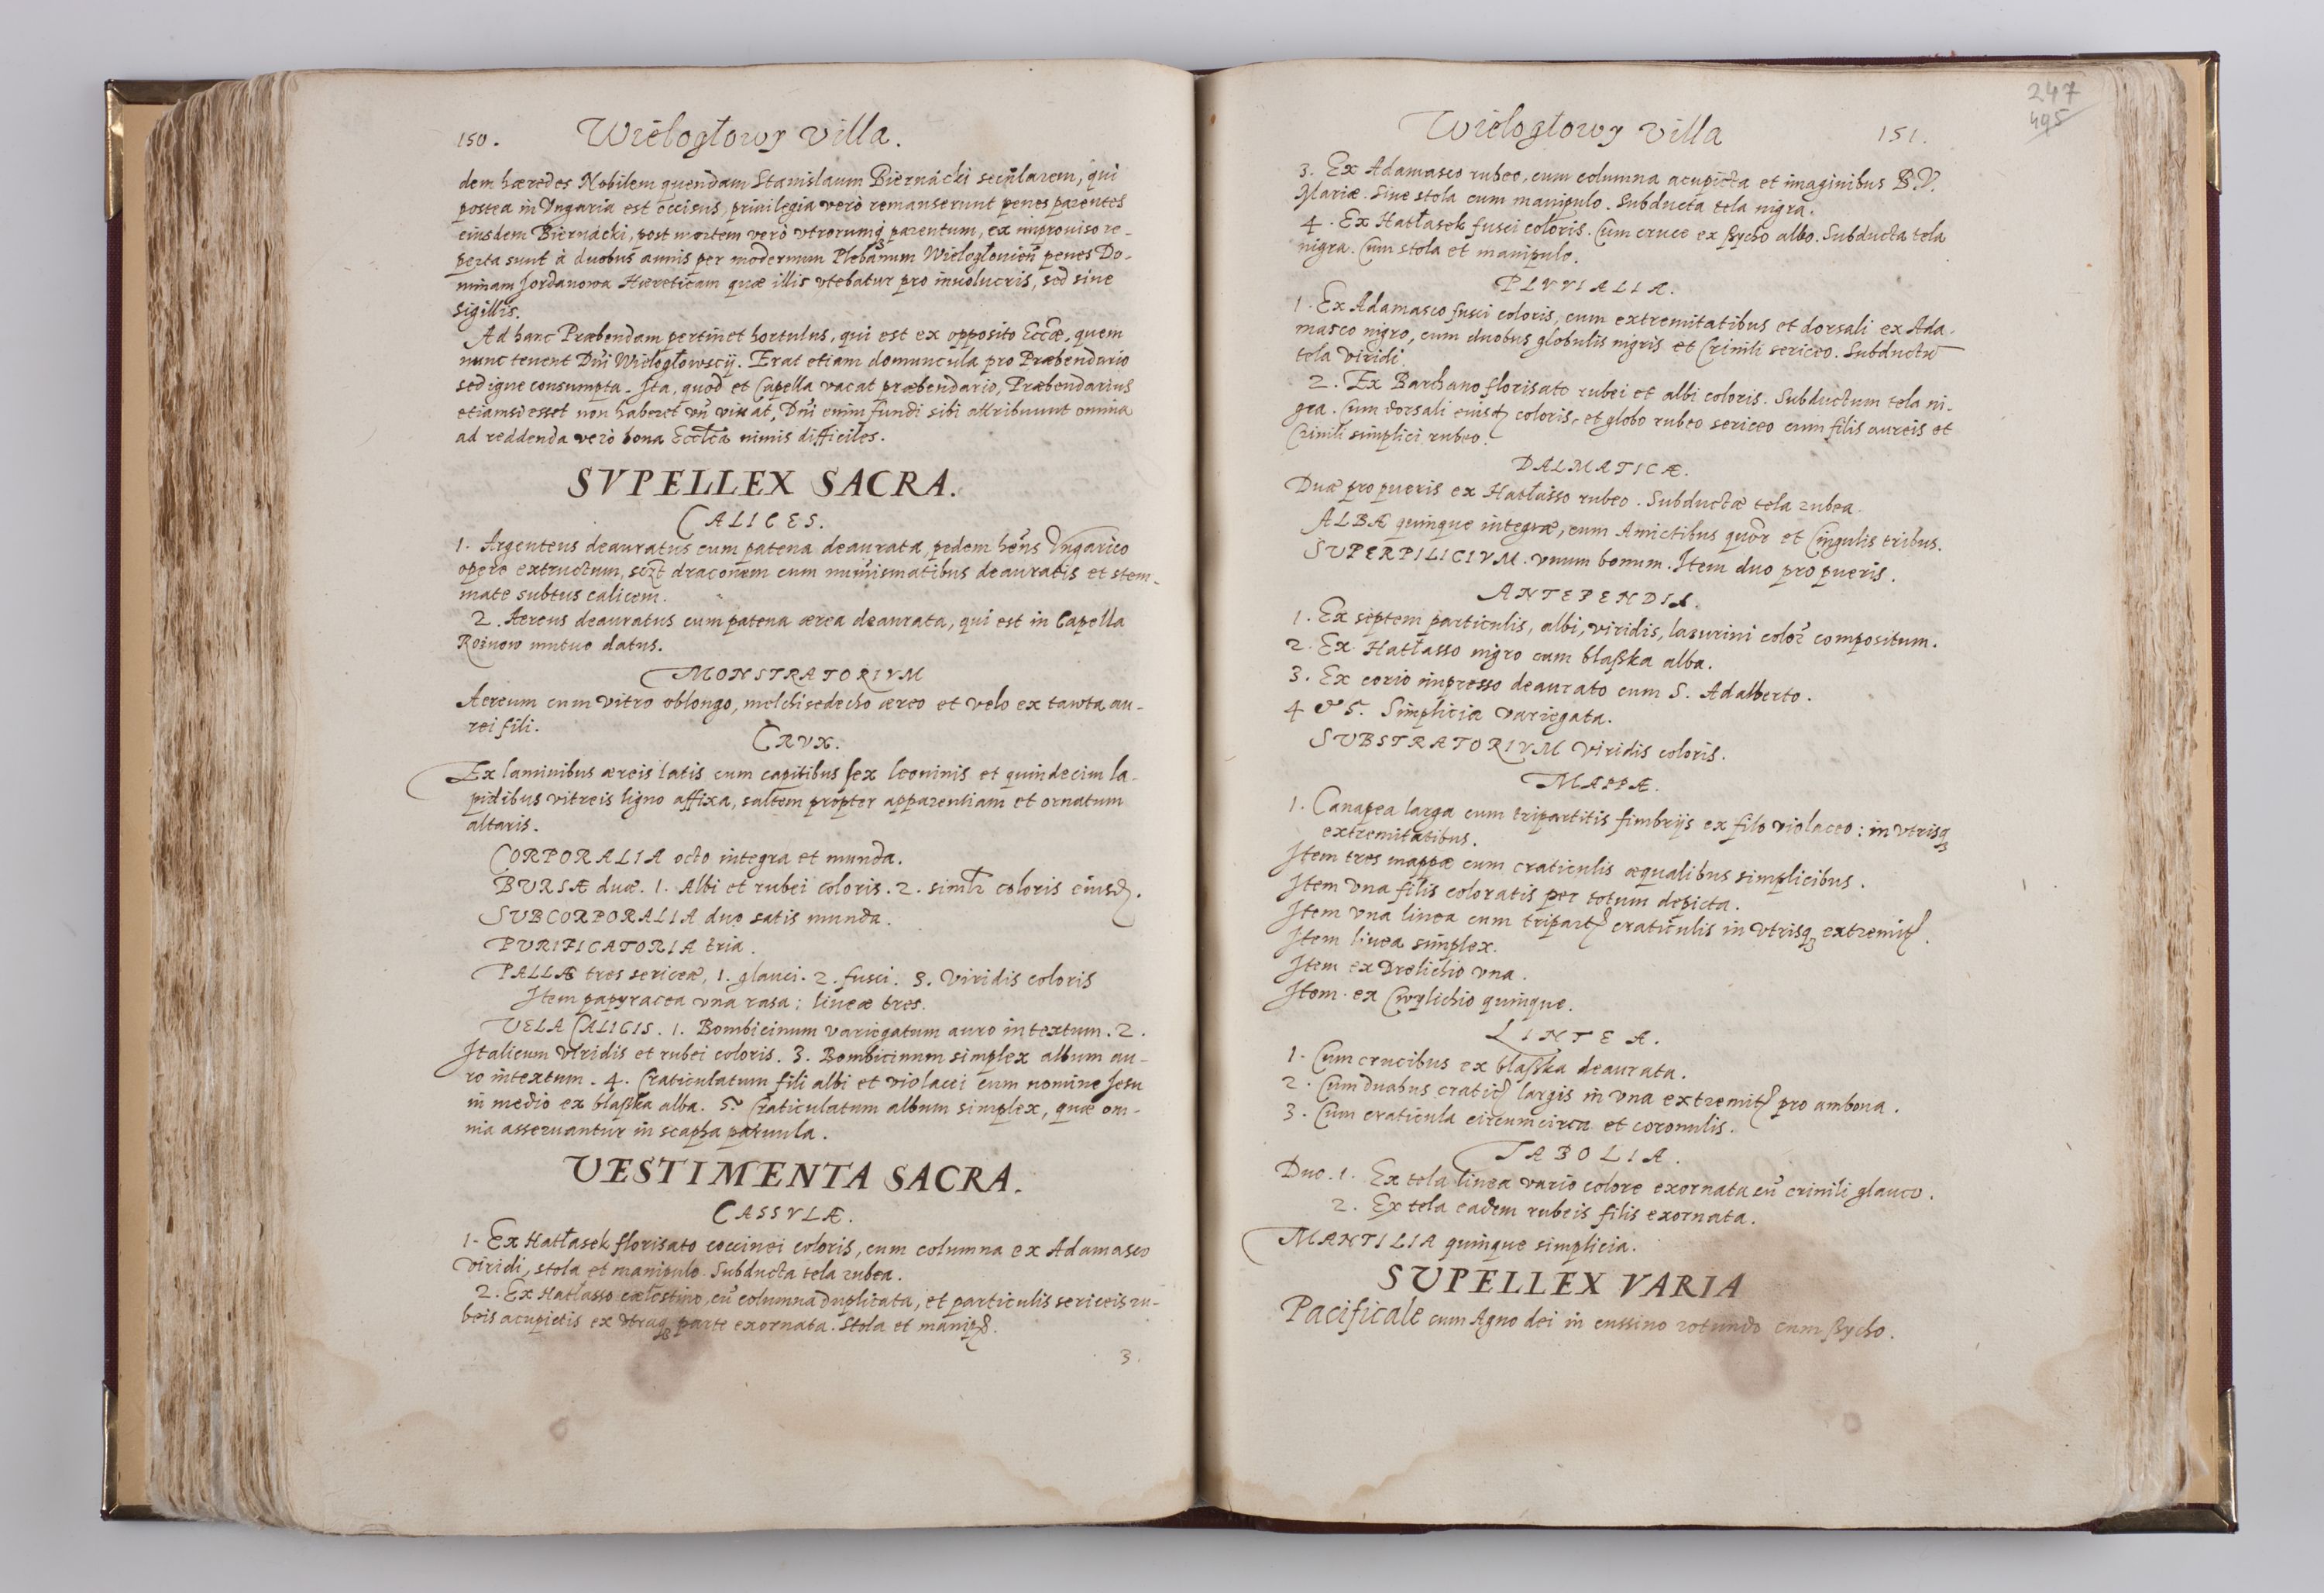 150. Wielogłowy villa.
dem hæredes Nobilem quendam Stanislaum Biernácki secularem, qui
postea in Vngaria est occisus, priuilegia verò remanserunt penes parentes
eiusdem Biernácki, post mortem verò vtrorumq parentum, ex improuiso re-
perta sunt à duobus annis per modernum Plebanum Wielogłouień penes Do-
minam Jordanowa Hæreticam quæ illis vtebatur pro inuolucris, sed sine
sigillis.
Ad hanc Præbendam pertinet hortulus, qui est ex opposito Eccæ, quem
nunc tenent Dni Wielogłowscij. Erat etiam domuncula pro Præbendario
sed igne consumpta. Ita, quod et Capella vacat præbendario, Præbendarius
etiamsi esset non haberet vn viuat, Dni enim fundi sibi attribuunt omnia
ad reddenda verò bona Eccłæ nimis difficiles.
SVPELLEX SACRA.
CALICES.
1. Argenteus deauratus cum patena deaurata, pedem hens Vngarico
opere extructum, sczt draconem cum numismatibus deauratis et stem-
mate subtus calicem.
2. Aereus deauratus cum patena ærea deaurata, qui est in Capella
Roznow mutuo datus.
MONSTRATORIVM
Aereum cum vitro oblongo, melchisedecho æreo et velo ex tawta au-
rei fili.
CRVX.
Ex laminibus æreis latis cum capitibus sex leoninis et quindecim la-
pidibus vitreis ligno affixa, saltem propter apparentiam et ornatum
altaris.
CORPORALIA octo integra et munda.
BVRSÆ duæ. 1. Albi et rubei coloris. 2. simłr coloris eiusd.
SVBCORPORALIA duo satis munda.
PVRIFICATORIA tria.
PALLÆ tres sericeæ, 1. glauci. 2. fusci. 3. viridis coloris
Item papyracea vna rasa: lineæ tres.
VELA CALICIS. 1. Bombicinum variegatum auro intextum. 2.
Italicum viridis et rubei coloris. 3. Bombicinum simplex album au-
ro intextum. 4. Craticulatum fili albi et violacei cum nomine Jesu
in medio ex blaßka alba. 5. Craticulatum album simplex, quæ om-
nia asseruantur in scapha paruula.
VESTIMENTA SACRA.
CASSVLÆ.
1. Ex Hatłasek florisato coccinei coloris, cum columna ex Adamasco
viridi, stola et manipulo. Subducta tela rubea.
2. Ex Hatłasso cælestino, cū columna duplicata, et particulis sericeis ru-
beis acupictis ex vtraq parte exornata. Stola et manip.
3.
247
495
Wielogłowy villa 151.
3. Ex Adamasco rubeo, cum columna acupicta et imaginibus B.V.
Mariæ. Sine stola cum manipulo. Subducta tela nigra.
4. Ex Hatłasek fusci coloris. Cum cruce ex ßycho albo. Subducta tela
nigra. Cum stola et manipulo.
PLVVIALIA.
1. Ex Adamasco fusci coloris, cum extremitatibus et dorsali ex Ada-
masco nigro, cum duobus globulis nigris et Crinili sericeo. Subductū
tela viridi.
2. Ex Barchano florisato rubei et albi coloris. Subductum tela ni-
gra. Cum dorsali eiusd coloris, et globo rubeo sericeo cum filis aureis et
Crinili simplici rubeo.
DALMATICÆ.
Duæ pro pueris ex Hatłasso rubeo. Subductæ tela rubea.
ALBÆ quinque integræ, cum Amictibus quor et Cingulis tribus.
SVPERPILICIVM. vnum bonum. Item duo pro pueris.
ANTEPENDIA.
1. Ex septem particulis, albi, viridis, lazurini color compositum.
2. Ex Hatłasso nigro cum blaßka alba.
3. Ex corio impresso deaurato cum S. Adalberto.
4 & 5. Simplicia variegata.
SVBSTRATORIVM viridis coloris.
MAPPÆ.
1. Canapea larga cum tripartitis fimbrijs ex filo violaceo: in vtrisq
extremitatibus.
Item tres mappæ cum craticulis æqualibus simplicibus.
Item vna filis coloratis per totum depicta.
Item vna linea cum tripart craticulis in vtrisq extremit.
Item linea simplex.
Item ex Drelichio vna.
Item ex Cwylichio quinque.
LINTEA.
1. Cum crucibus ex blaßka deaurata.
2. Cum duabus cratic largis in vna extremit pro ambona.
3. Cum craticula circumcirca et coronulis.
TABOLIA.
Duo. 1. Ex tela linea vario colore exornata cū crinili glauco.
2. Ex tela eadem rubeis filis exornata.
MANTILIA quinque simplicia.
SVPELLEX VARIA
Pacificale cum Agno dei in cussino rotundo cum ßycho.